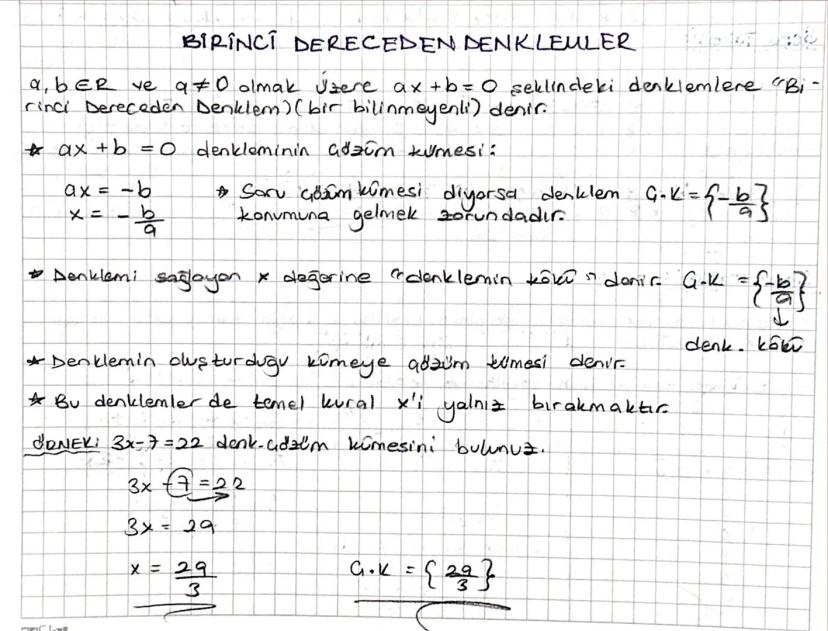 BİRİNCİ DERECEDEN DENKLEMLER
a, b ∈ R ve a ≠ 0 olmak üzere ax + b = 0 şeklindeki denklemlere "Bi-
rinci Dereceden Denklem) (bir bilinmeyenli) denir.
* ax + b = 0 denkleminin çözüm kümesi:
ax = -b * Soru çözüm kümesi diyorsa denklem Ç.K = {-b/a}
x = -b/a konumuna gelmek zorundadır.
* Denklemi sağlayan x değerine "denklemin kökü" denir. Ç.K = {-b/a}
↓
denk. kökü
* Denklemin oluşturduğu kümeye çözüm kümesi denir.
* Bu denklemler de temel kural x'i yalnız bırakmaktır.
ÖRNEK: 3x-7=22 denk. çözüm kümesini bulunuz.
3x -7 = 22
3x = 29
x = 29/3 Ç.K = {29/3}